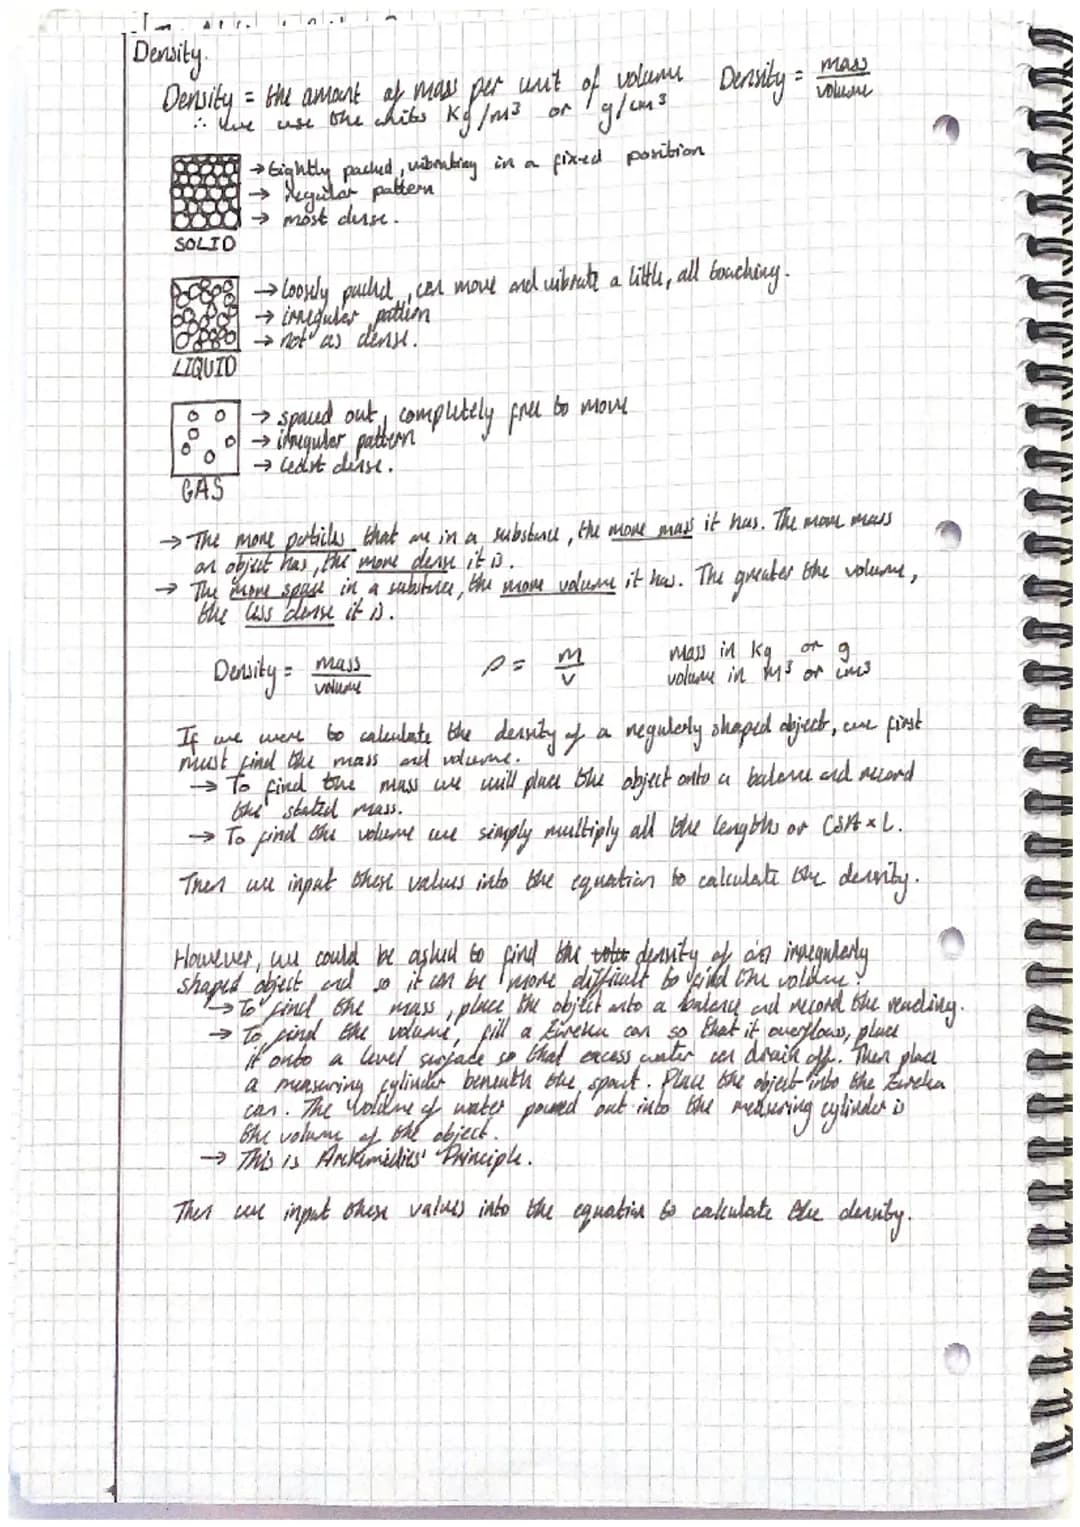 Density.
Density = the amount of mass per unit of volume Density = mass/volume
∴ we use the units Kg/m³ or g/cm³
→ tightly packed, vibrating in a fixed position
→ regular pattern
→ most dense.
SOLID
→ loosely packed, can move and vibrate a little, all touching.
→ irregular pattern
→ not as dense.
LIQUID
→ spaced out, completely free to move
→ irregular pattern
→ least dense.
GAS
→ The more particles that are in a substance, the more mass it has. The more mass
an object has, the more dense it is.
→ The more space in a substance, the more volume it has. The greater the volume,
the less dense it is.
Density = mass/volume ρ = m/v mass in Kg or g
volume in m³ or cm³
If we were to calculate the density of a regularly shaped object, we first
must find the mass and volume.
→ To find the mass we will place the object onto a balance and record
the stated mass.
→ To find the volume we simply multiply all the lengths or CSA × L.
Then we input these values into the equation to calculate the density.
However, we could be asked to find the density of an irregularly
shaped object and so it can be more difficult to find the volume.
→ To find the mass, place the object onto a balance and record the reading.
→ To find the volume, fill a Eureka can so that it overflows, place
it onto a level surface so that excess water can drain off. Then place
a measuring cylinder beneath the spout. Place the object into the Eureka
can. The volume of water poured out into the measuring cylinder is
the volume of the object.
→ This is Arkimedies' Principle.
Then we input these values into the equation to calculate the density.